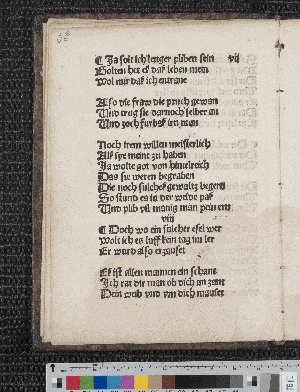 ¶ Ja solt ich lenger plíben sein vij
Solten het es das leben mein
Wol mir das ich entrane

Also die fraw die pruch gewan
Und trug sie darnoch selber an
Und zoch furbas im man

Noch irem willen meisterlich
Als sye meint zu haben
Ja wolte got von himelreich
Das sie weren begraben
Die noch sulches gewaltz begern
So stund es in der welde pas
Und plib vil manig man pein ern
viij
¶ Doch wo ein sulcher esel wer
Wolt ich en luff kein tag nit ler
Er wurd also erzauset

Es ist allen mannen ein schant
Ich rat dir man ob dich an zant
Dein weib und ym dich mauset